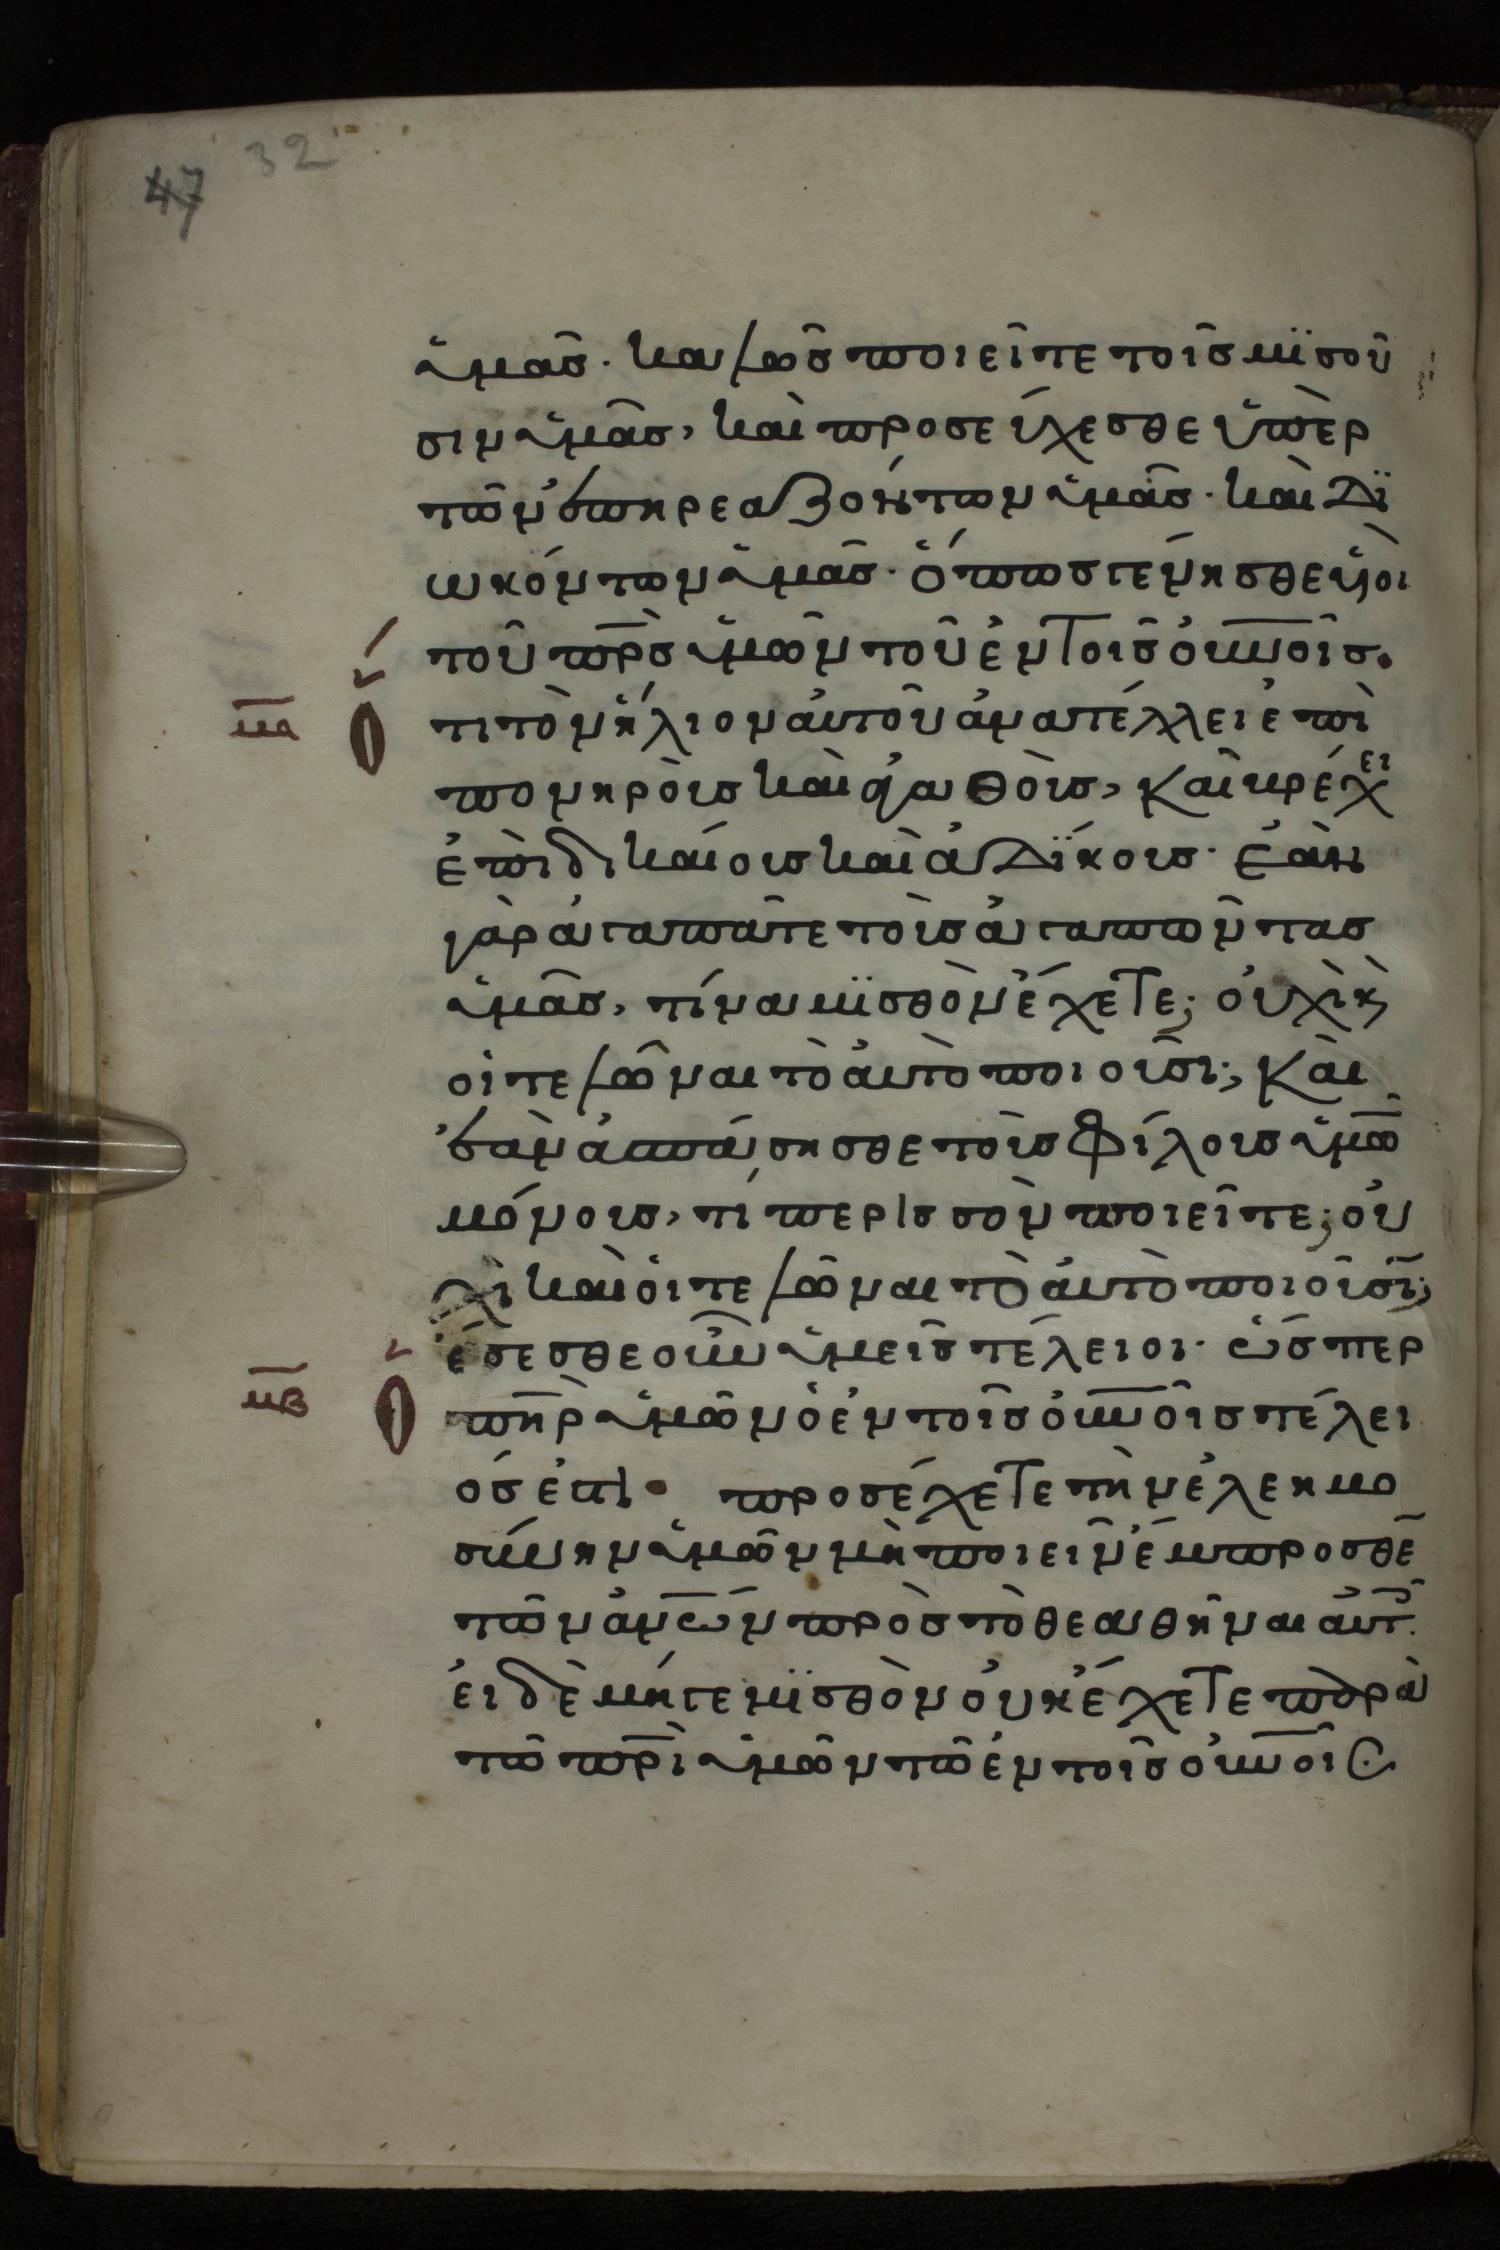 47 32
ὑμᾶς. καλῶς ποιεῖτε τοῖς μϊσοῦ
σιν ὑμᾶς, καὶ προσεύχεσθε ὑπὲρ
τῶν ἐπηρεαζόντων ὑμᾶς. καὶ δϊ
ωκόντων ὑμᾶς. ὅπως γένησθε ὑιοι
τοῦ πρ̅ς ὑμῶν τοῦ ἐν τοῖς ὀυν̅οῖς.
μα Ὅ
τι τὸν ἥλιον ἀυτοῦ ἀνατέλλει ἐπὶ
πονηροὺς καὶ ἀγαθοὺς, καὶ βρέχει
ἐπὶ δικαίους καὶ ἀδΐκους. ἐὰν
γὰρ ἀγαπᾶτε τοὺς ἀγαπῶντας
ὑμᾶς, τίνα μϊσθὸν ἔχετε; οὐχὶ κ
οἱ τελῶναι τὸ ἀυτὸ ποιοῦσι; καὶ
ἐὰν ἀσπάσησθε τοὺς φίλους ὑμῶ
μόνους, τί περισσὸν ποιεῖτε; οὐ
χὶ καὶ ὁι τελῶναι τὸ ἀυτὸ ποιοῦσϊ;
ἔσεσθε οὖν ὑμεῖς τέλειοι. ὥσπερ
μβ Ὁ
πη̅ρ ὑμῶν ὁ ἐν τοῖς ὀυν̅οῖς τέλει
ός ἐστι. προσέχετε τὴν ἐλεημο
σύνην ὑμῶν μὴ ποιεῖν ἔμπροσθε̅
τῶν ἀν̅ων πρὸς τὸ θεαθῆναι ἀυτ
ἐι δὲ μήγε μϊσθὸν οὐκ ἔχετε παρὰ
τῶ πρ̅ὶ ὑμῶν τῶ ἐν τοῖς ὀυν̅οῖς.